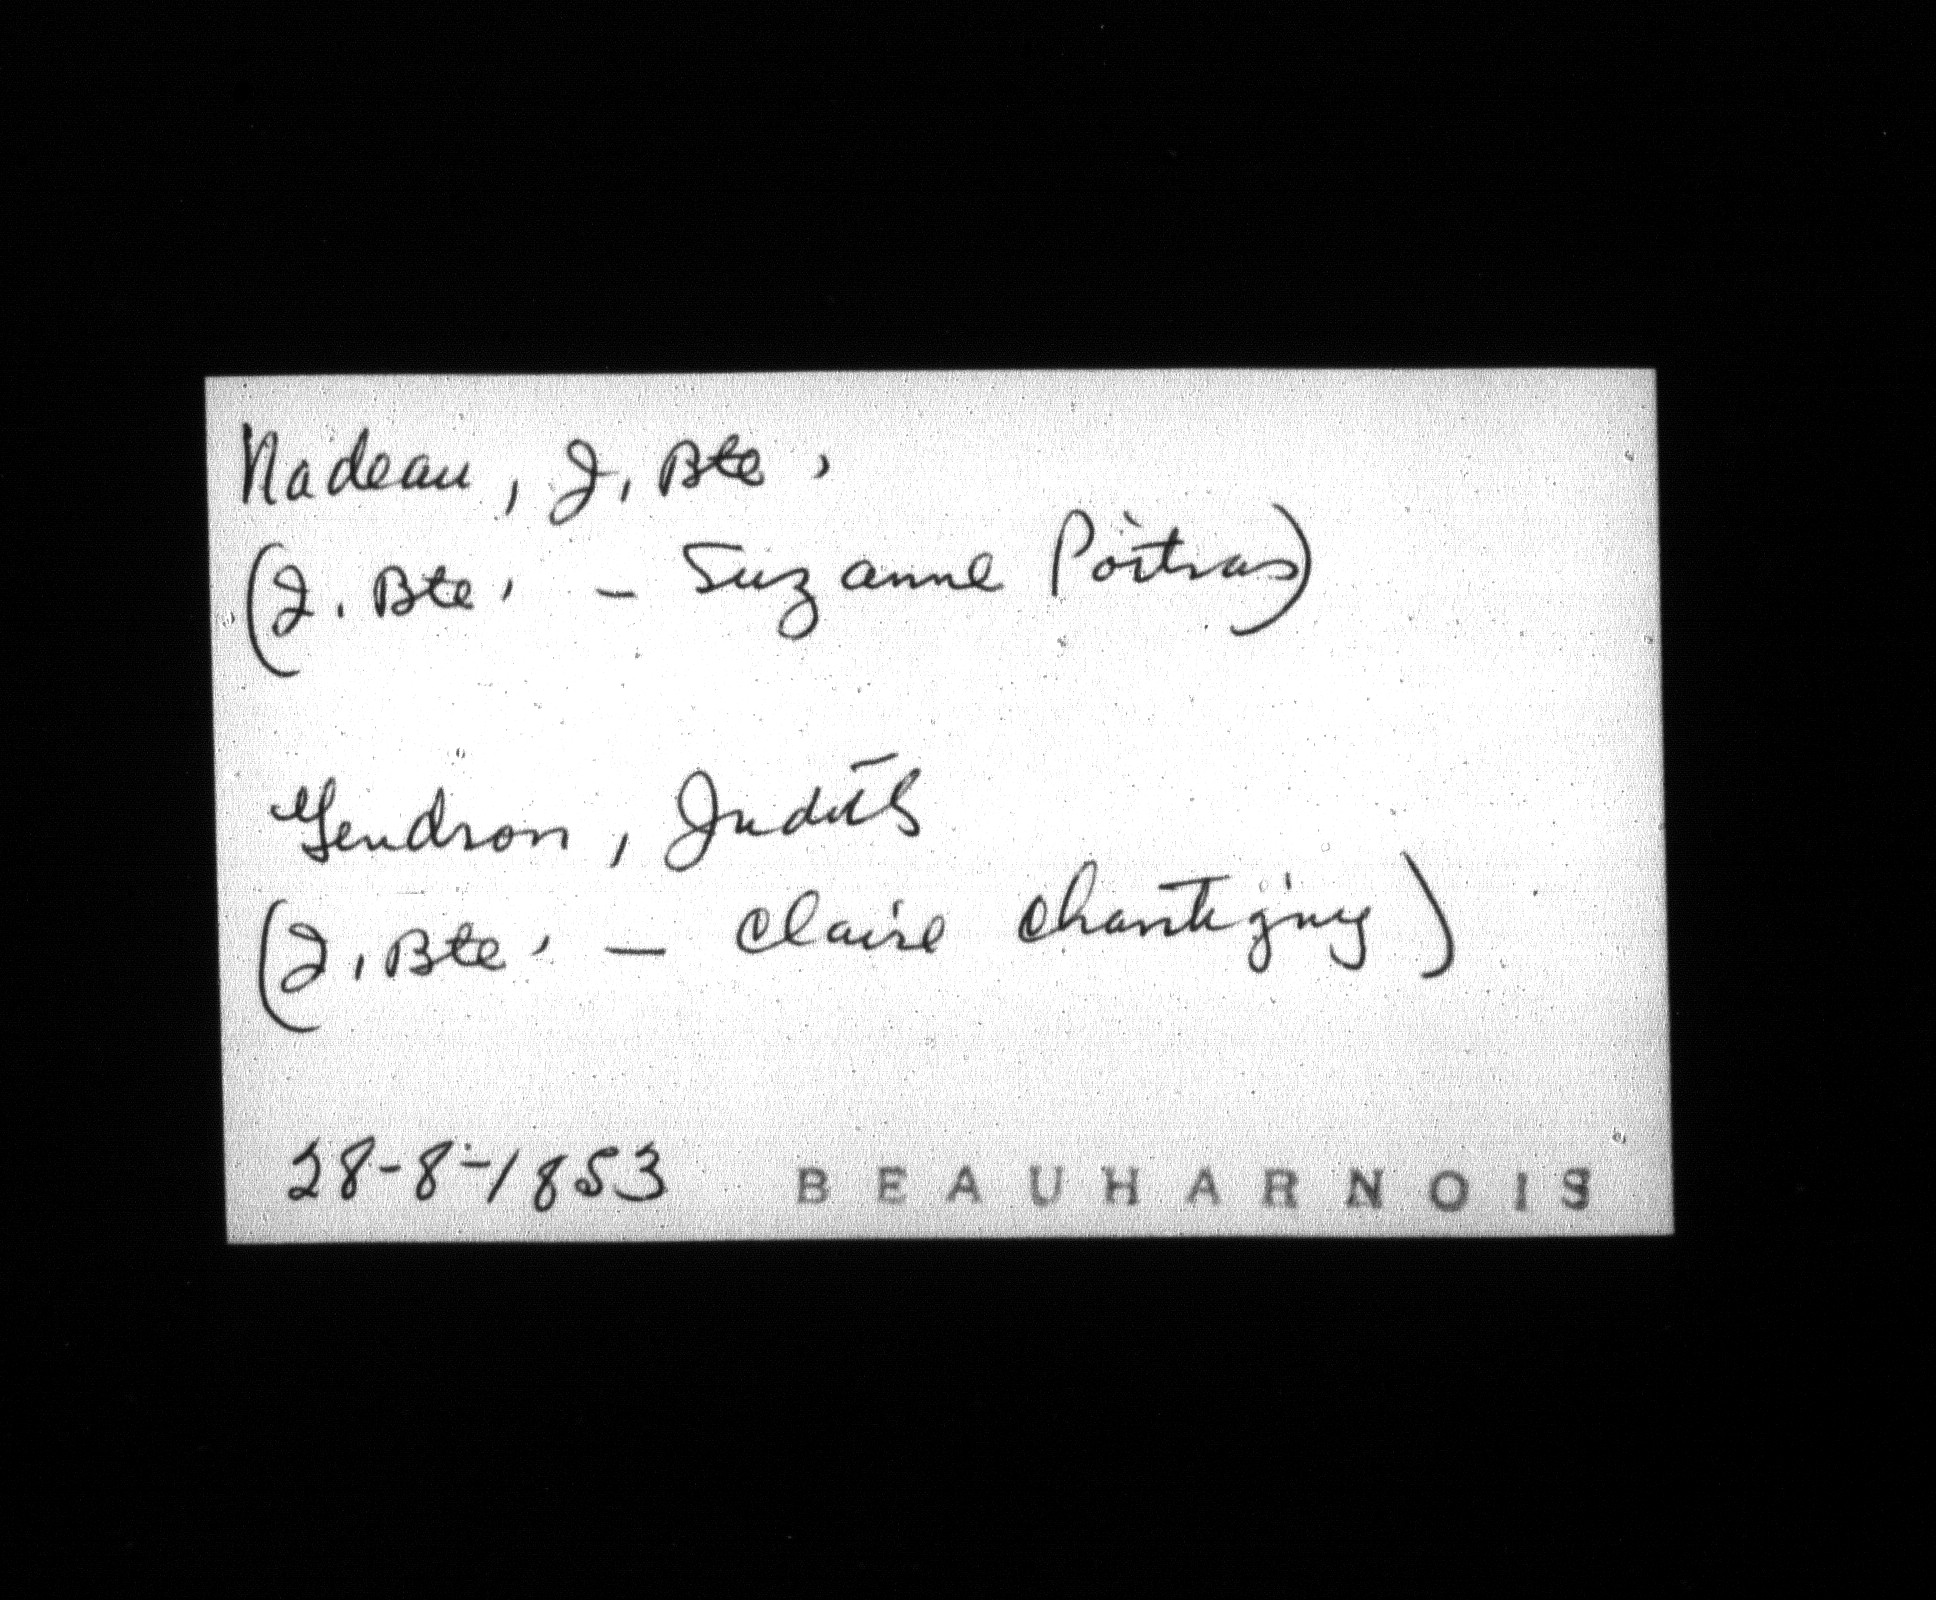 Nadeau, J. Bte,
(J. Bte, - Suzanne Poitras)
Gendron, Judith
(J. Bte, - Claire Chantigny)
28-8-1853 BEAUHARNOIS